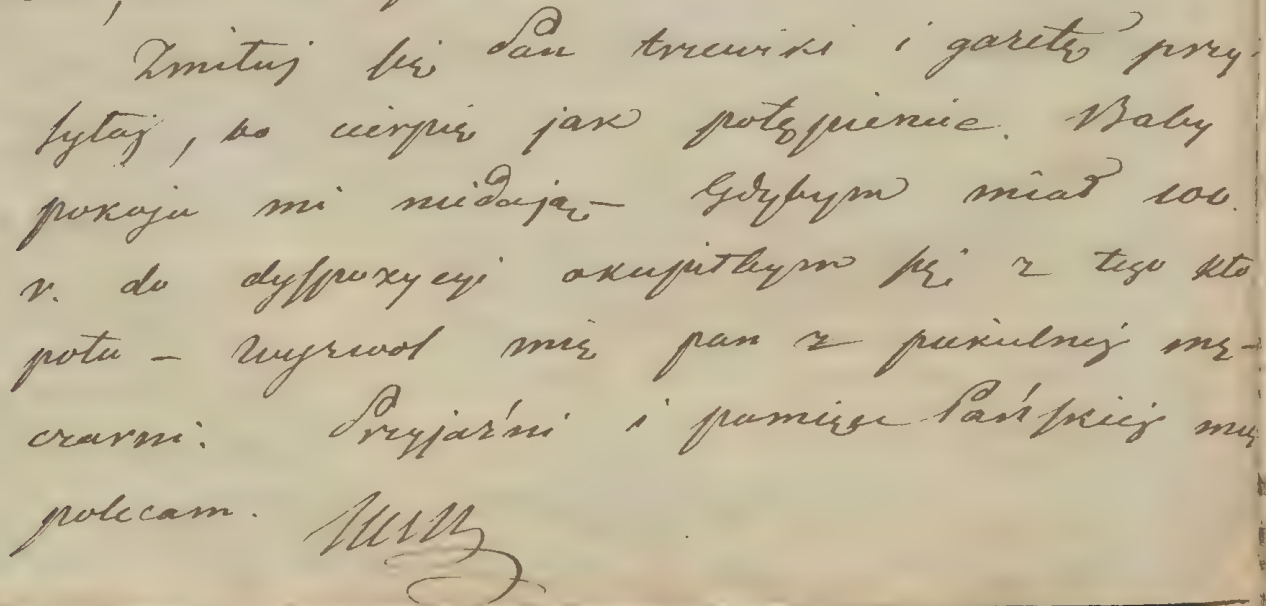 Zmiłuj się Pan trzewiki i gazetę przy-
syłaj, bo cierpię jak potępieniec. Baby
pokoju mi niedają – Gdybym miał 100.
r. do dyspozycyi okupiłbym się z tego kło
potu – Wyzwol mię pan z piekielnéj mę-
czarni. Przyjaźni i pamięci Pańskiéj mię
polecam.